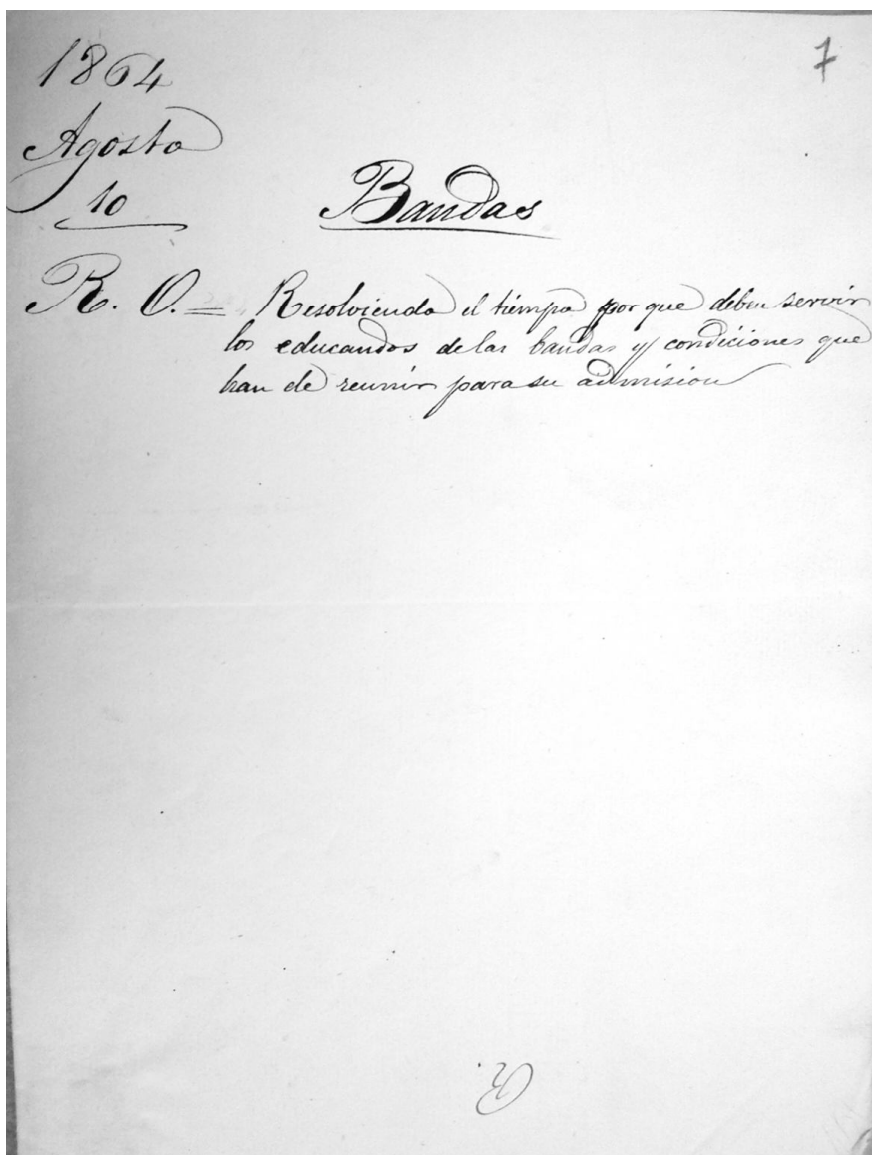 1864
7
Agosto
10
Bandas
R. O. = Resolviendo el tiempo por que deben servir
los educandos de las bandas y condiciones que
han de reunir para su admision